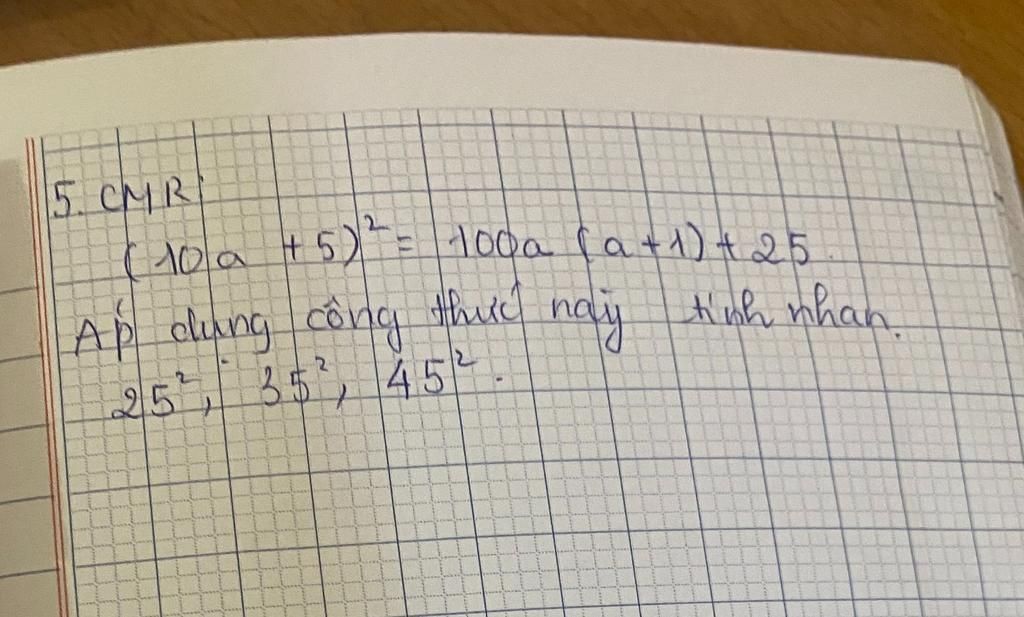 5. CMR
(10a + 5)² = 100a (a+1) + 25.
Áp dụng công thức này tính nhan.
25², 35², 45².